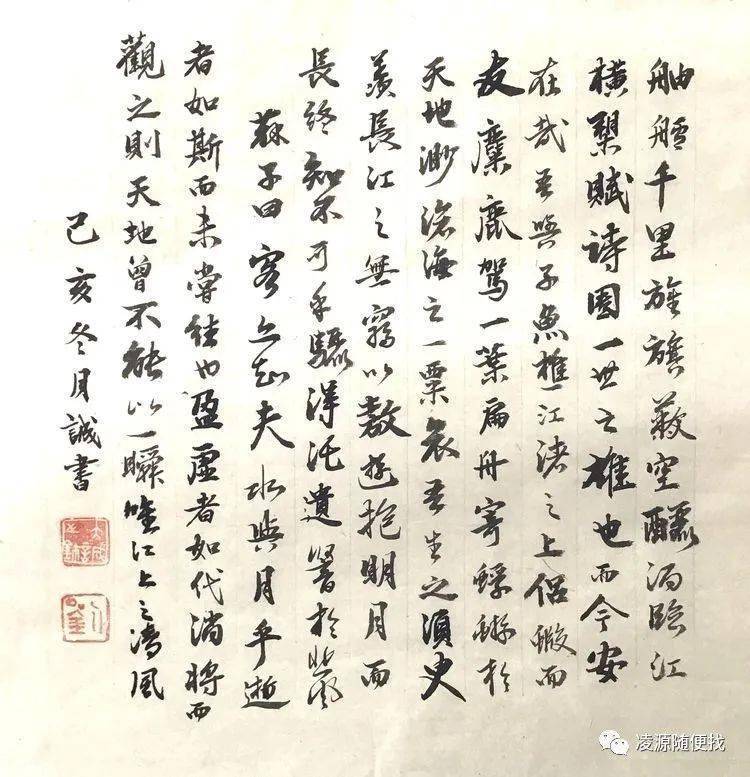 舳艫千里旌旗蔽空釃酒臨江
橫槊賦詩固一世之雄也而今安
在哉吾與子魚樵江渚之上侶蝦而
友麋鹿駕一葉扁舟寄蜉蝣於
天地渺滄海之一粟哀吾生之須臾
羨長江之無窮以敖遊抱明月而
長終知不可乎驟得託遺響於悲風
蘇子曰客亦知夫水與月乎逝
者如斯而未嘗往也盈虛者如代消將而
觀之則天地曾不能以一瞬唯江上之清風
己亥冬月誠書
凌源随便找